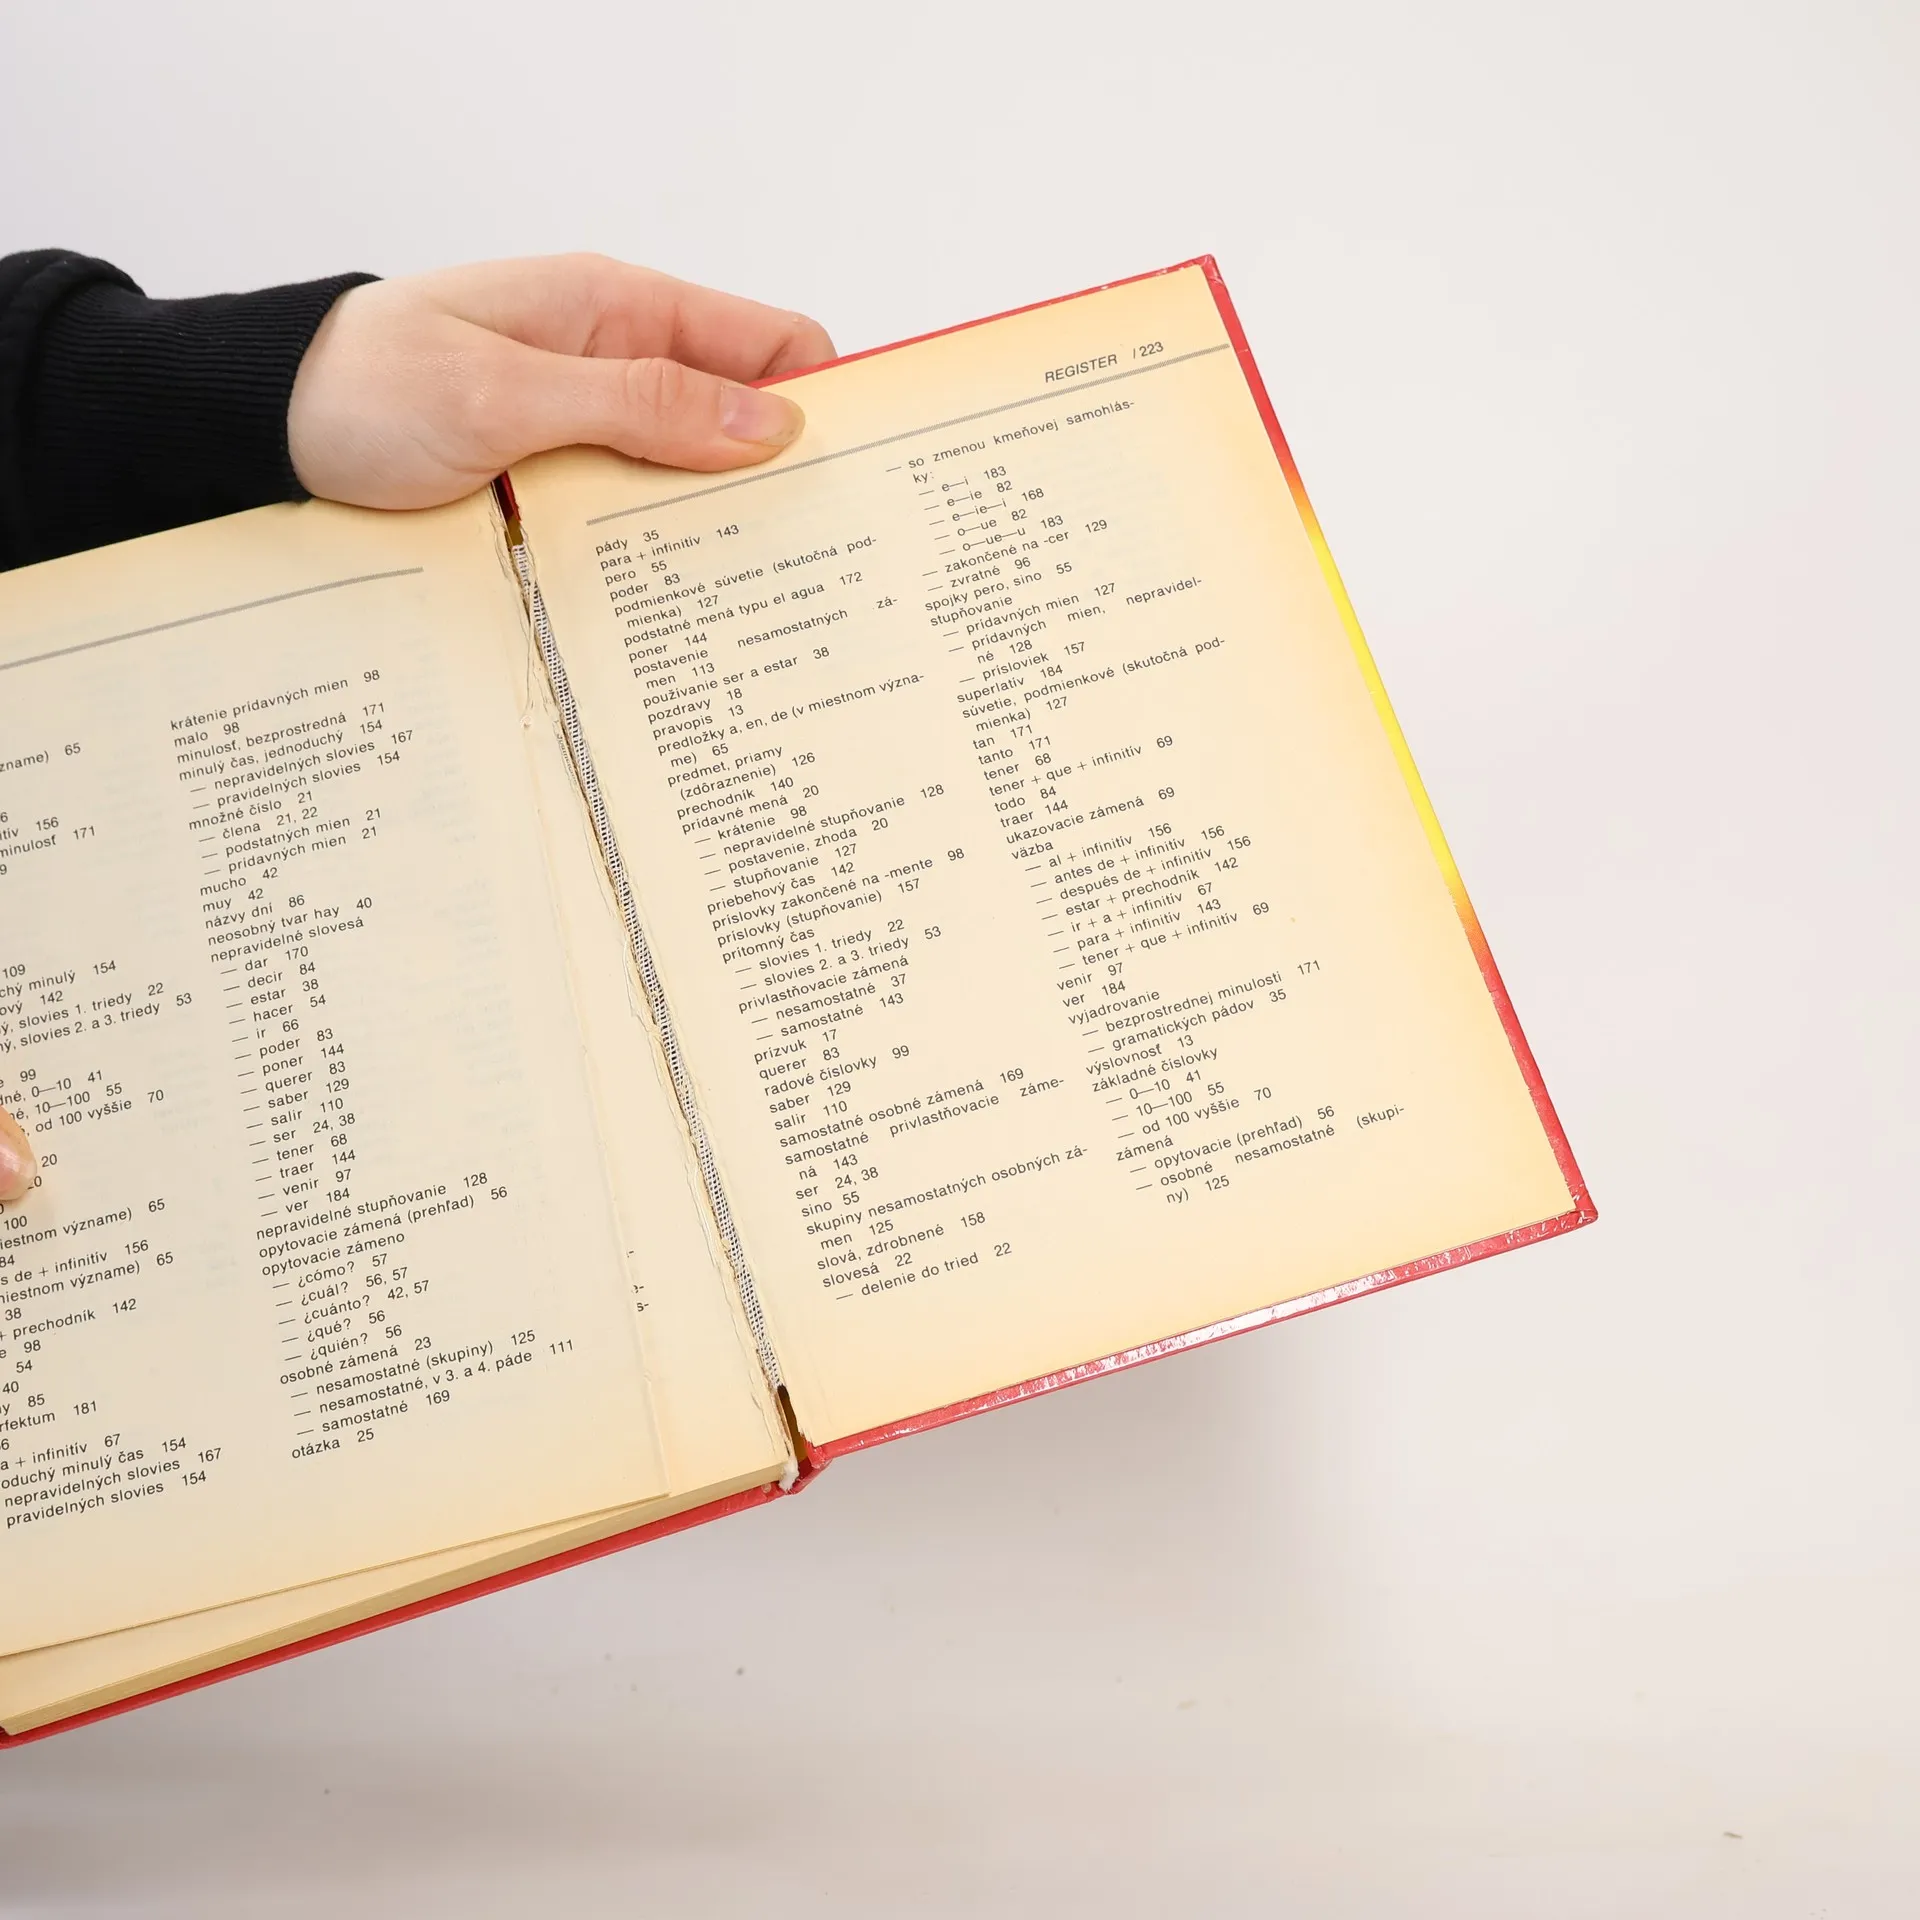 zname) 65
6
itív 156
minulosť 171
9
109
chý minulý 154
ový 142
ý, slovies 1. triedy 22
ný, slovies 2. a 3. triedy 53
e 99
dné, 0—10 41
né, 10—100 55
, od 100 vyššie 70
20
20
100
iestnom význame) 65
84
s de + infinitív 156
miestnom význame) 65
38
+ prechodník 142
e 98
54
40
ny 85
rfektum 181
66
a + infinitív 67
oduchý minulý čas 154
nepravidelných slovies 167
pravidelných slovies 154
krátenie prídavných mien 98
malo 98
minulosť, bezprostredná 171
minulý čas, jednoduchý 154
— nepravidelných slovies 167
— pravidelných slovies 154
množné číslo 21
— člena 21, 22
— podstatných mien 21
— prídavných mien 21
mucho 42
muy 42
názvy dní 86
neosobný tvar hay 40
nepravidelné slovesá
— dar 170
— decir 84
— estar 38
— hacer 54
— ir 66
— poder 83
— poner 144
— querer 83
— saber 129
— salir 110
— ser 24, 38
— tener 68
— traer 144
— venir 97
— ver 184
nepravidelné stupňovanie 128
opytovacie zámená (prehľad) 56
opytovacie zámeno
— ¿cómo? 57
— ¿cuál? 56, 57
— ¿cuánto? 42, 57
— ¿qué? 56
— ¿quién? 56
osobné zámená 23
— nesamostatné (skupiny) 125
— nesamostatné, v 3. a 4. páde 111
— samostatné 169
otázka 25
REGISTER / 223
pády 35
para + infinitív 143
pero 55
poder 83
podmienkové súvetie (skutočná pod-
mienka) 127
podstatné mená typu el agua 172
poner 144
postavenie nesamostatných zá-
men 113
používanie ser a estar 38
pozdravy 18
pravopis 13
predložky a, en, de (v miestnom význa-
me) 65
predmet, priamy
(zdôraznenie) 126
prechodník 140
prídavné mená 20
— krátenie 98
— nepravidelné stupňovanie 128
— postavenie, zhoda 20
— stupňovanie 127
priebehový čas 142
príslovky zakončené na -mente 98
príslovky (stupňovanie) 157
prítomný čas
— slovies 1. triedy 22
— slovies 2. a 3. triedy 53
privlastňovacie zámená
— nesamostatné 37
— samostatné 143
prízvuk 17
querer 83
radové číslovky 99
saber 129
salir 110
samostatné osobné zámená 169
samostatné privlastňovacie záme-
ná 143
ser 24, 38
sino 55
skupiny nesamostatných osobných zá-
men 125
slová, zdrobnené 158
slovesá 22
— delenie do tried 22
— so zmenou kmeňovej samohlás-
ky:
— e—i 183
— e—ie 82
— e—ie—i 168
— o—ue 82
— o—ue—u 183
— zakončené na -cer 129
— zvratné 96
spojky pero, sino 55
stupňovanie
— prídavných mien 127
— prídavných mien, nepravidel-
né 128
— prísloviek 157
superlatív 184
súvetie, podmienkové (skutočná pod-
mienka) 127
tan 171
tanto 171
tener 68
tener + que + infinitív 69
todo 84
traer 144
ukazovacie zámená 69
väzba
— al + infinitív 156
— antes de + infinitív 156
— después de + infinitív 156
— estar + prechodník 142
— ir + a + infinitív 67
— para + infinitív 143
— tener + que + infinitív 69
venir 97
ver 184
vyjadrovanie
— bezprostrednej minulosti 171
— gramatických pádov 35
výslovnosť 13
základné číslovky
— 0—10 41
— 10—100 55
— od 100 vyššie 70
zámená
— opytovacie (prehľad) 56
— osobné nesamostatné (skupi-
ny) 125